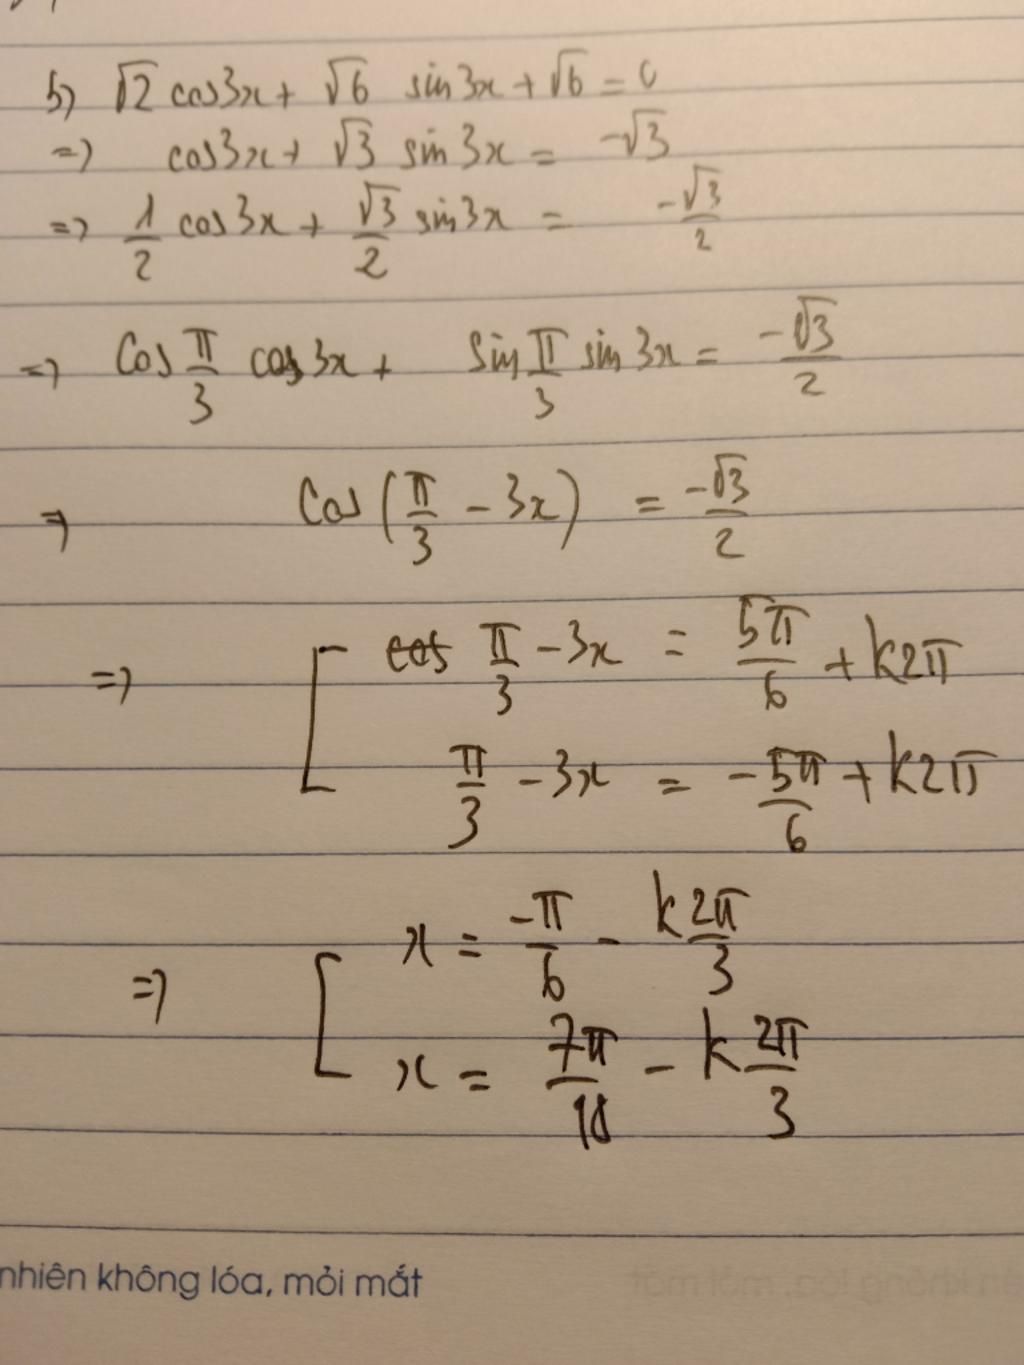 b) √2 cos3x + √6 sin3x + √6 = 0
=> cos3x + √3 sin3x = -√3
=> 1/2 cos3x + √3/2 sin3x = -√3/2
=> Cos π/3 cos3x + sin π/3 sin3x = -√3/2
=> Cos(π/3 - 3x) = -√3/2
=> [ π/3 - 3x = 5π/6 + k2π
π/3 - 3x = -5π/6 + k2π
=> [ x = -π/6 - k2π/3
x = 7π/18 - k 2π/3
nhiên không lóa, mỏi mắt